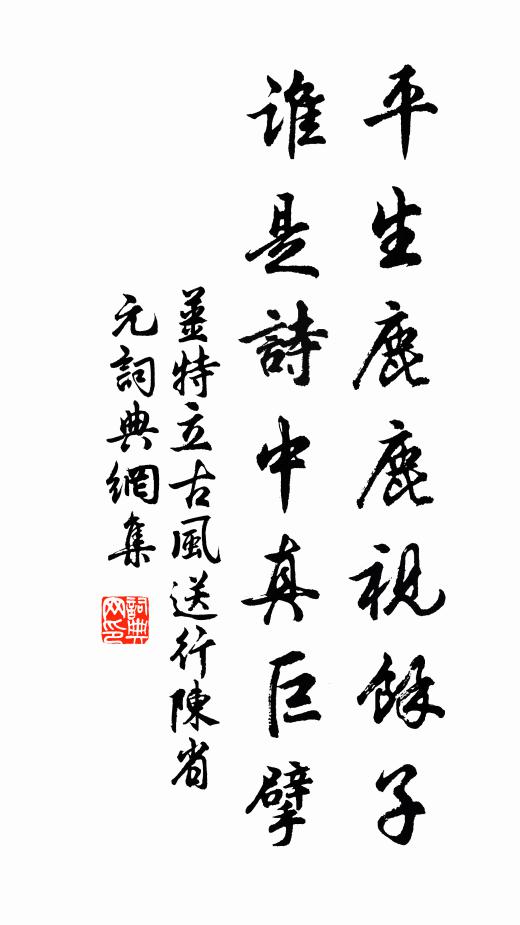 平生鹿鹿視餘子
誰是詩中真巨擘
薑特立古風送行陳省
元詞典網集
詞典網印